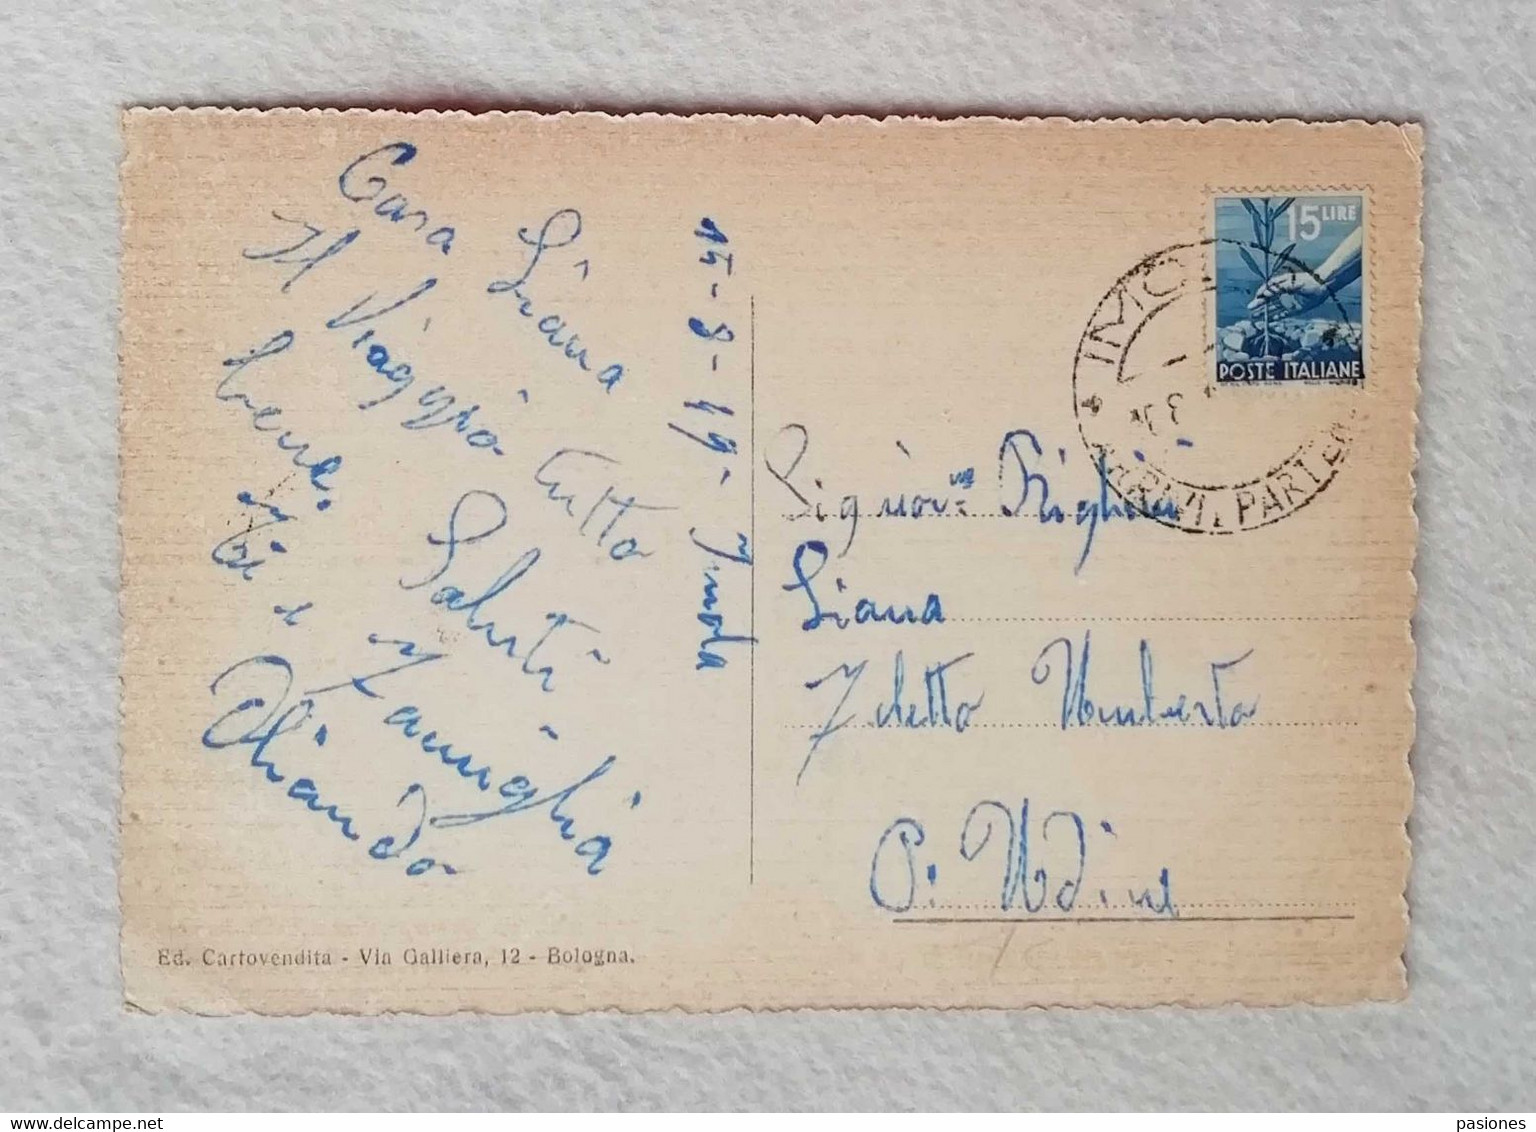 15-8-49. Imola
Cara Liana
Il Viaggio tutto
bene. Saluti
Te e Famiglia
Oliando
15 LIRE
POSTE ITALIANE
IMOLA
ARRIVI E PARTENZE
Signor.na Righini
Liana
Umberto
P. Udine
Ed. Cartovendita - Via Galliera, 12 - Bologna.
delcampe.net
pasiones